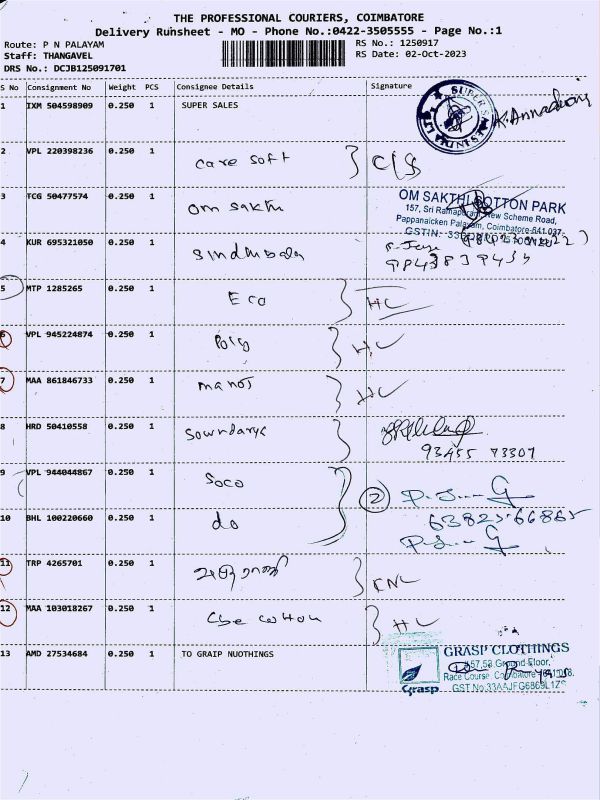 THE PROFESSIONAL COURIERS, COIMBATORE
Delivery Runsheet - MO - Phone No.:0422-3505555 - Page No.:1
Route: P N PALAYAM RS No.: 1250917
Staff: THANGAVEL RS Date: 02-Oct-2023
DRS No.: DCJB125091701
S No Consignment No Weight PCS Consignee Details Signature
1 IXM 504598909 0.250 1 SUPER SALES
2 VPL 220398236 0.250 1 care soft C/S
3 TCG 50477574 0.250 1 om sakthi
OM SAKTHI COTTON PARK
157, Sri Ramapuram, New Scheme Road,
Pappanaicken Palayam, Coimbatore-641 037
GSTIN:
4 KUR 695321050 0.250 1 Sindhubala
5 MTP 1285265 0.250 1 Eco HC
6 VPL 945224874 0.250 1 Poly HC
7 MAA 861846733 0.250 1 manoj HC
8 HRD 50410558 0.250 1 Sowndarya
93455 73307
9 VPL 944044867 0.250 1 Soco 2
10 BHL 100220660 0.250 1 do 63825 66865
11 TRP 4265701 0.250 1
12 MAA 103018267 0.250 1 Cbe cotton HC
13 AMD 27534684 0.250 1 TO GRAIP NUOTHINGS
GRASP CLOTHINGS
Ground Floor,
Race Course, Coimbatore
GST No:33AAJFG6869L1ZS
Grasp